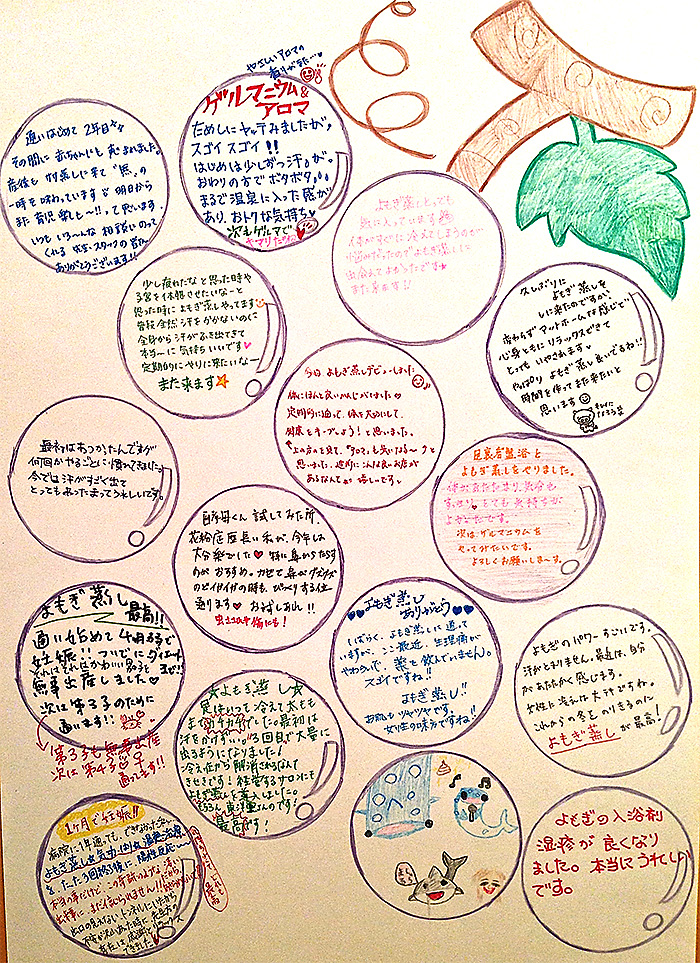 通いはじめて2年目
その間に赤ちゃんにも恵まれました。
産後も
一時を味わっています
また育児楽し〜!!って思います。
いつもいろ〜んな相談にのって
くれる先生・スタッフの皆さん
ありがとうございます!!
やさしいアロマの
香りがまた…
ゲルマニウム&
アロマ
ためしにヤッテみましたが、
スゴイスゴイ!!
はじめは少しずつ汗が。
おわりの方でボタボタ。。
まるで温泉に入った感が
あり、おトクな気持ち♥
次もゲルマで
キマリだな
よもぎ蒸しとっても
気に入っています
体がすぐに冷えてしまうのが
悩みだったのでよもぎ蒸しに
出会えてよかったです
また来ます!!
少し疲れたなと思った時や
子宮を休憩させたいなーと
思った時によもぎ蒸しやってます
普段全然汗をかかないのに
全身から汗がふき出てきて
本当〜に気持ちいいです♥
定期的にやりに来たいなー
また来ます☆
久しぶりに
よもぎ蒸しを
しに来たのですが、
変わらずアットホームな感じで
心身ともにリラックスできて
とってもいやされます
やっぱりよもぎ蒸し良いですね!!
時間を作ってまた来たいと
思います
キレイに
なろう
今日よもぎ蒸しデビューしました
体にほんと良いかんじがしました♡
定期的に通って、体を大切にして、
健康をキープしよう!と思いました。
上の方のを見て、「アロマ」も気になる〜♪と
思いました。近所にこんな良いお店が
あるなんてっ 嬉し〜です。
最初はあつかったんですが
何回かやるごとに慣れてきました
今では汗がすごく出て
とってもあったまってうれしいです。
足裏岩盤浴と
よもぎ蒸しをやりました。
体があたたまり、気分も
すっきり、とても気持ちが
よかったです。
次はゲルマニウムを
やってみたいです。
よろしくお願いしまーす。
試してみた所
花粉症歴長い私が、今年は
大分楽でした♥特に鼻からだす
のがおすすめ。カゼで鼻がグズグズ
のどイガイガの時も、びっくりする位
通ります♥お試しあれ!!
よもぎ蒸し
最高!!
通い始めて4ヶ月で
妊娠!!ついでにダイエット
それはそれはかわいい男の子
無事出産しました♥
次は第2子のために
通います!!
第3子も無事出産
次は第4子
通ってます!!
♥♥よもぎ蒸し
ありがとう♥♥
しばらく、よもぎ蒸しに通って
いますが、ここ最近、生理痛が
やわらいで、薬を飲んでいません。
スゴイですね!!
よもぎ蒸し!!
お肌もツヤツヤです。
女性の味方ですね!!
よもぎのパワーすごいです。
汗がとまりません。最近は、自分
があたたかく感じます。
女性に冷えは大テキですね。
これからの冬をのりきるのに
よもぎ蒸しが最高!
☆よもぎ蒸し☆
実はいつも冷えて太もも
までカチカチでした。最初は
汗をかかず…。3回目で大量に
出るようになりました!
冷え症から解消されるなんて
きせきです!経営するサロンにも
よもぎ蒸しを導入しました。
最高です!
1ヶ月で妊娠!!
病院に1年通っても、できなかった
よもぎ蒸し&気功
たった3回
出口の見えないトンネルにいたから
できました♥
よもぎの入浴剤
湿疹が良くなり
ました。本当にうれしい
です。